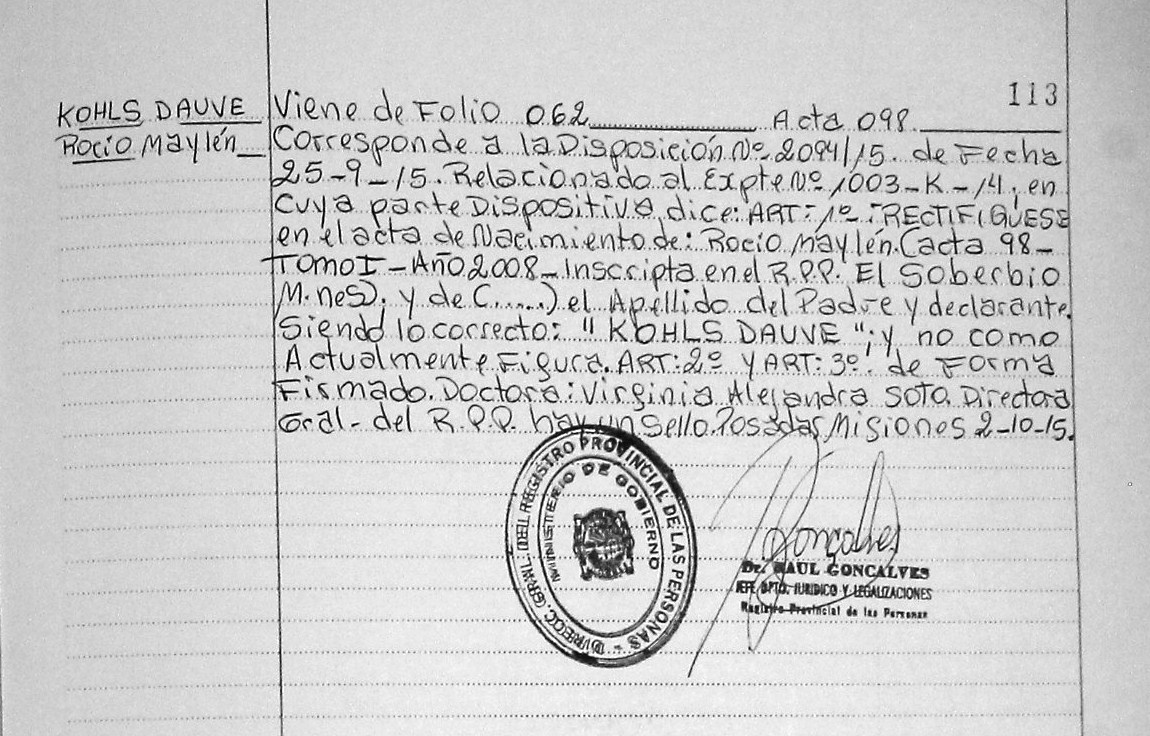 113
KOHLS DAUVE
Rocio Maylén
Viene de Folio 062 Acta 098
Corresponde a la Disposición Nº 2094/15. de Fecha
25-9-15. Relacionado al Expte Nº 1003-K-14; en
cuya parte Dispositiva, dice: ART: 1º: RECTIFIGÜESE
en el acta de Nacimiento de: Rocio Maylén. (acta 98-
TOMO I - Año 2008 - Inscripta en el R.P.P. El Soberbio
M.nes). y de (......) el Apellido del Padre y declarante.
Siendo lo correcto: "KOHLS DAUVE"; y no como
Actualmente Figura. ART: 2º y ART: 3º. de Forma
Firmado. Doctora: Virginia Alejandra SOTO. Directora
Gral- del R.P.P. hay un Sello. Posadas, Misiones 2-10-15.
DIRECC. GRAL. DEL REGISTRO PROVINCIAL DE LAS PERSONAS -
MINISTERIO DE GOBIERNO
Gonçalves
Dr. RAUL GONCALVES
JEFE DPTO. JURIDICO Y LEGALIZACIONES
Registro Provincial de las Personas